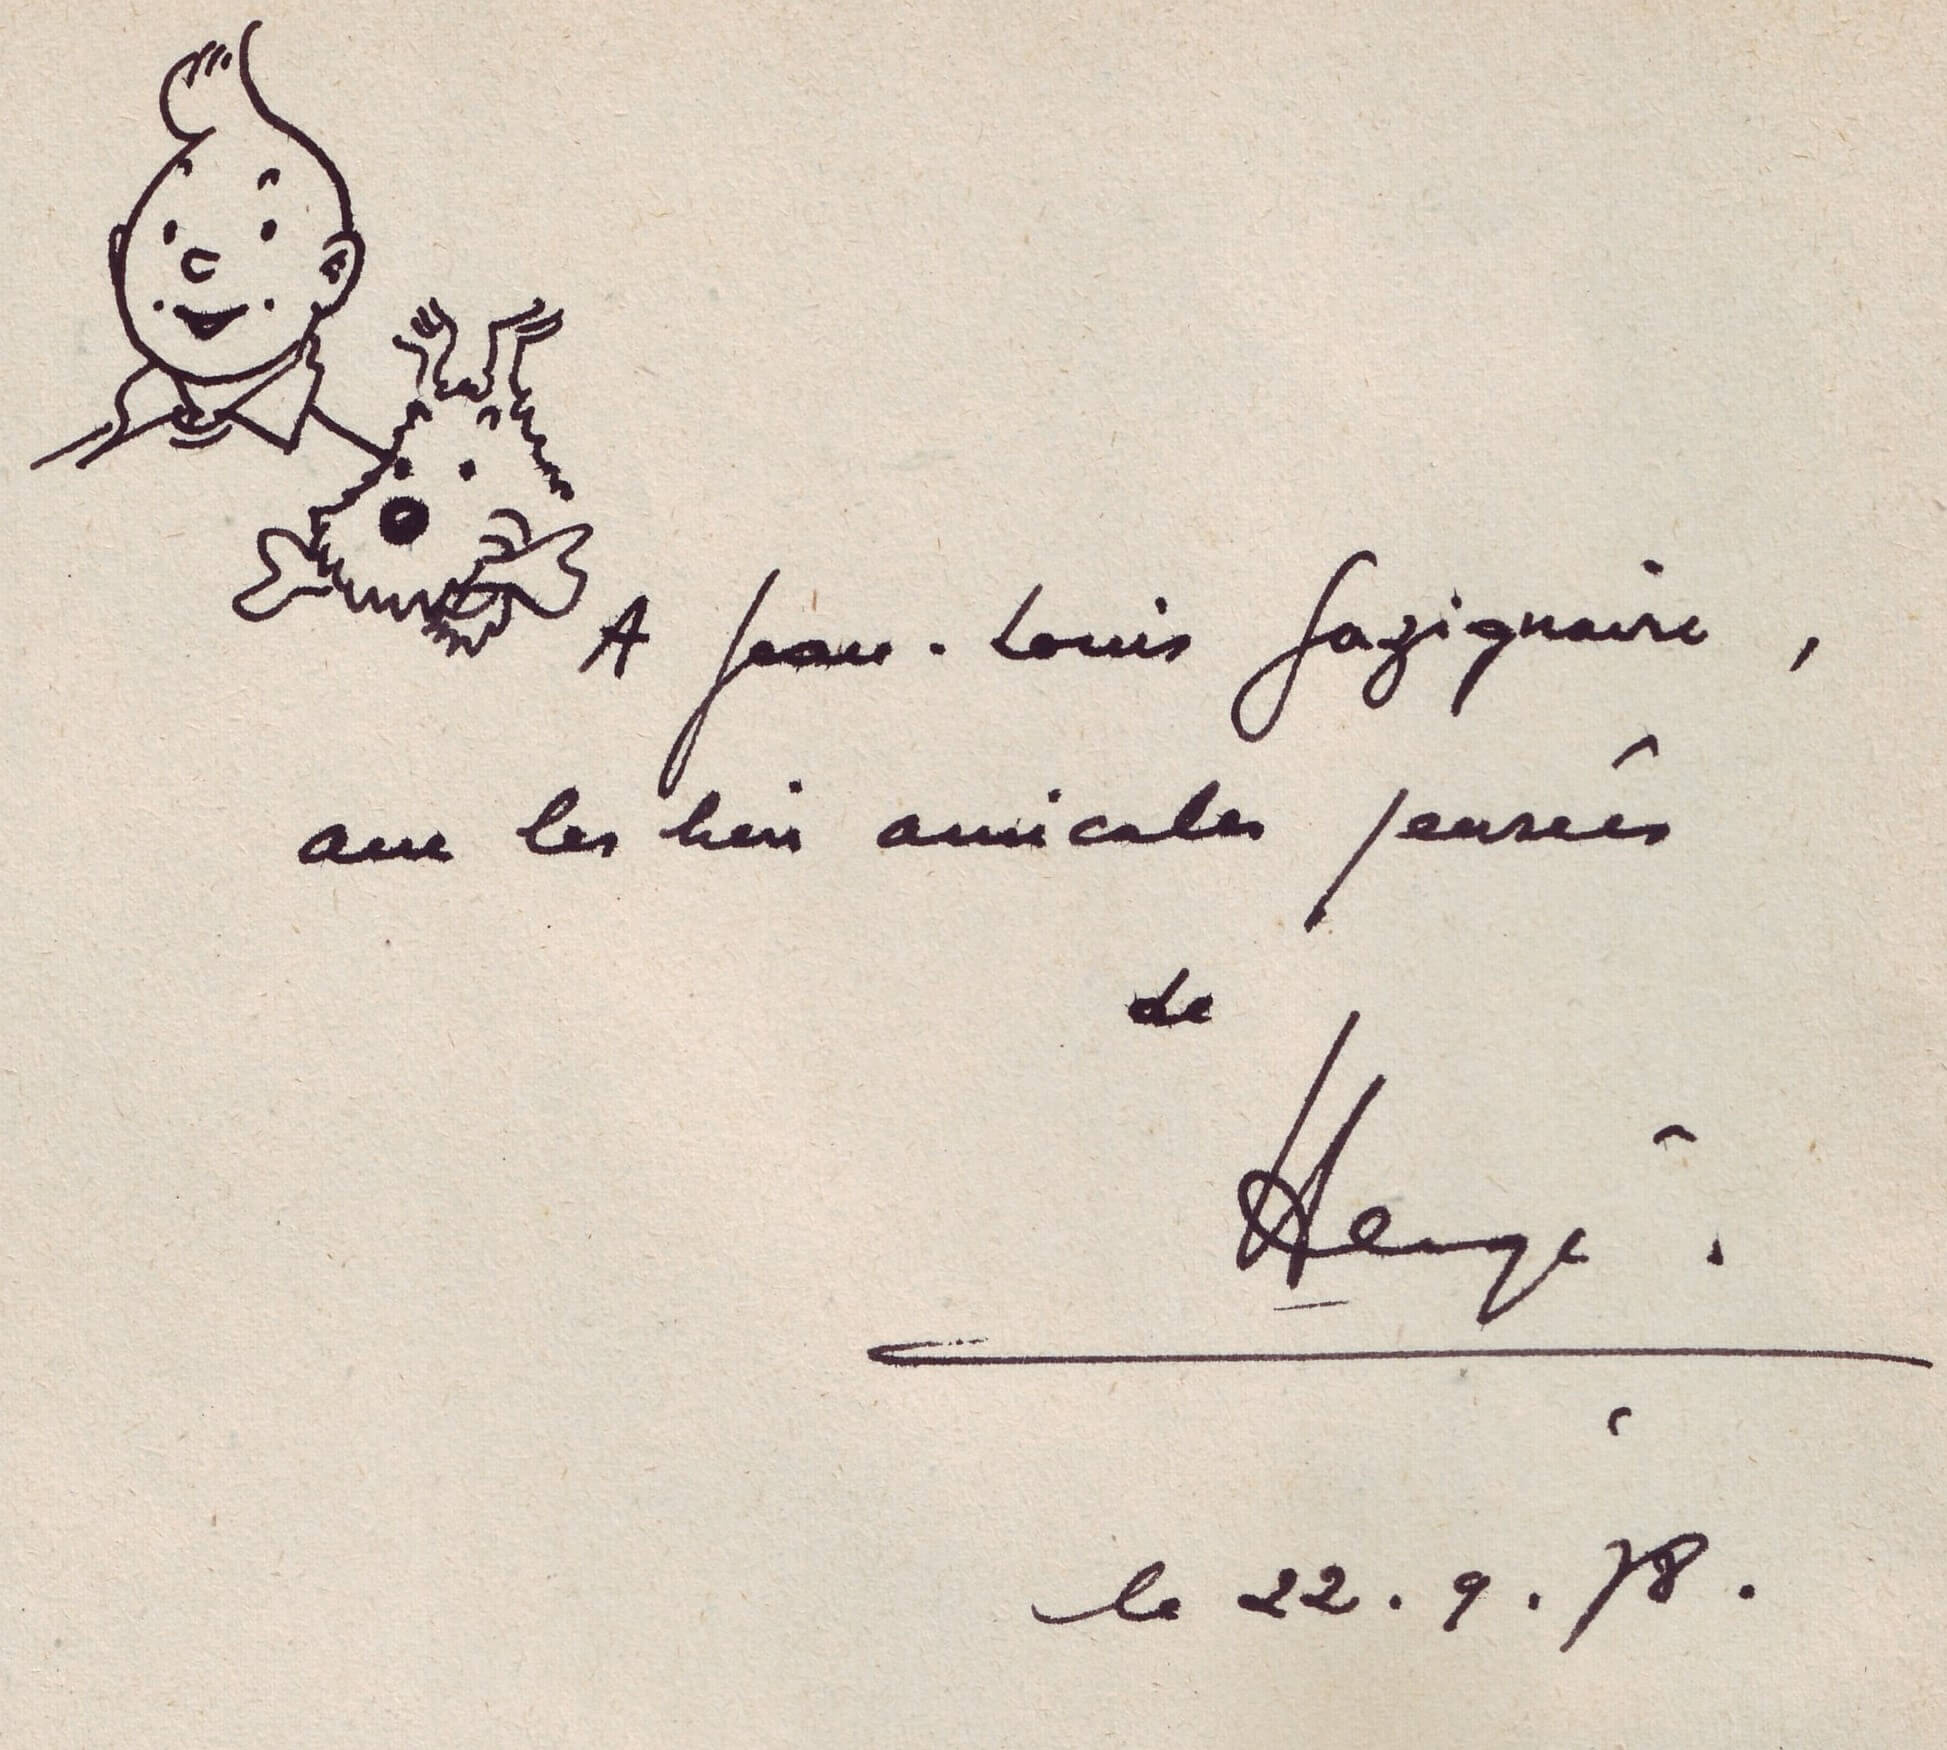 A Jean-Louis Gazignaire,
avec les bien amicales pensées
de
Hergé.
le 22.9.78.